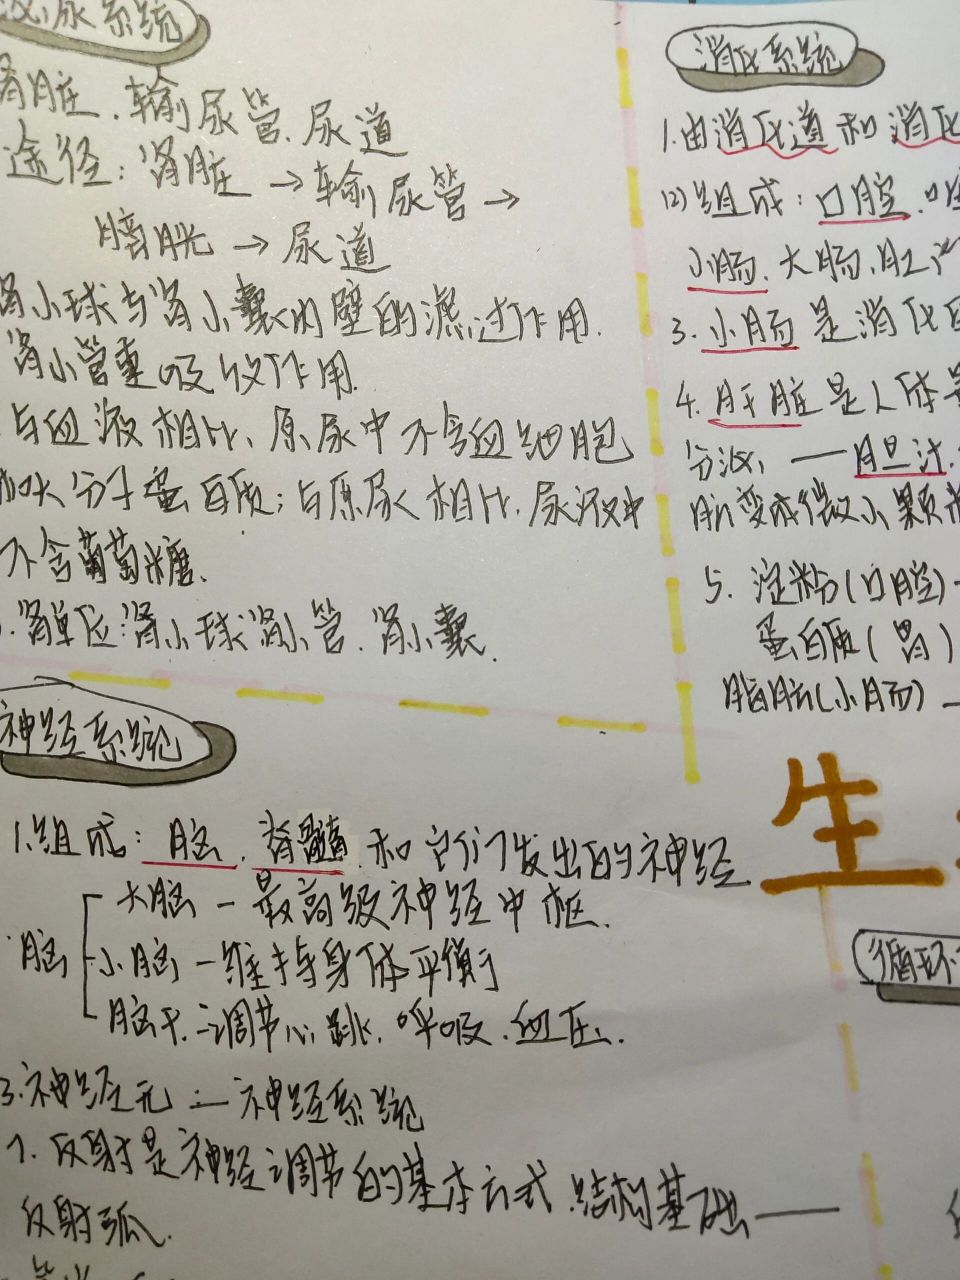 泌尿系统
肾脏.输尿管.尿道
途径:肾脏→输尿管→
膀胱→尿道
肾小球与肾小囊内壁的滤过作用.
肾小管重吸收作用.
与血液相比、原尿中不含血细胞
和大分子蛋白质;与原尿相比,尿液中
不含葡萄糖.
肾单位:肾小球肾小管.肾小囊.
神经系统
1.组成:脑.脊髓.和它们发出的神经
大脑—最高级神经中枢.
脑 小脑—维持身体平衡
脑干:调节心跳.呼吸.血压.
3.神经元:—神经系统
7.反射是神经调节的基本方式.结构基础——
反射弧.
消化系统
1.由消化道和消化
(2)组成:口腔.
小肠.大肠.肛
3.小肠是消化
4.肝脏是人体
分泌——胆汁.
肪变成微小颗
5.淀粉(口腔)—
蛋白质(胃)
脂肪(小肠)—
生
循环